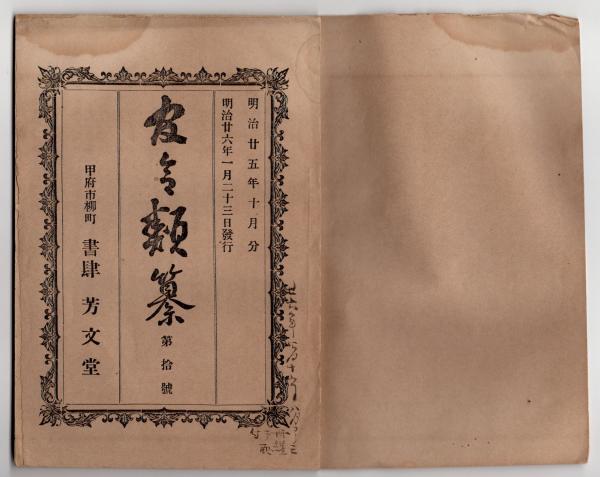 明治廿五年十月分
明治廿六年一月二十三日發行
官令類纂 第拾號
甲府市柳町 書肆 芳文堂